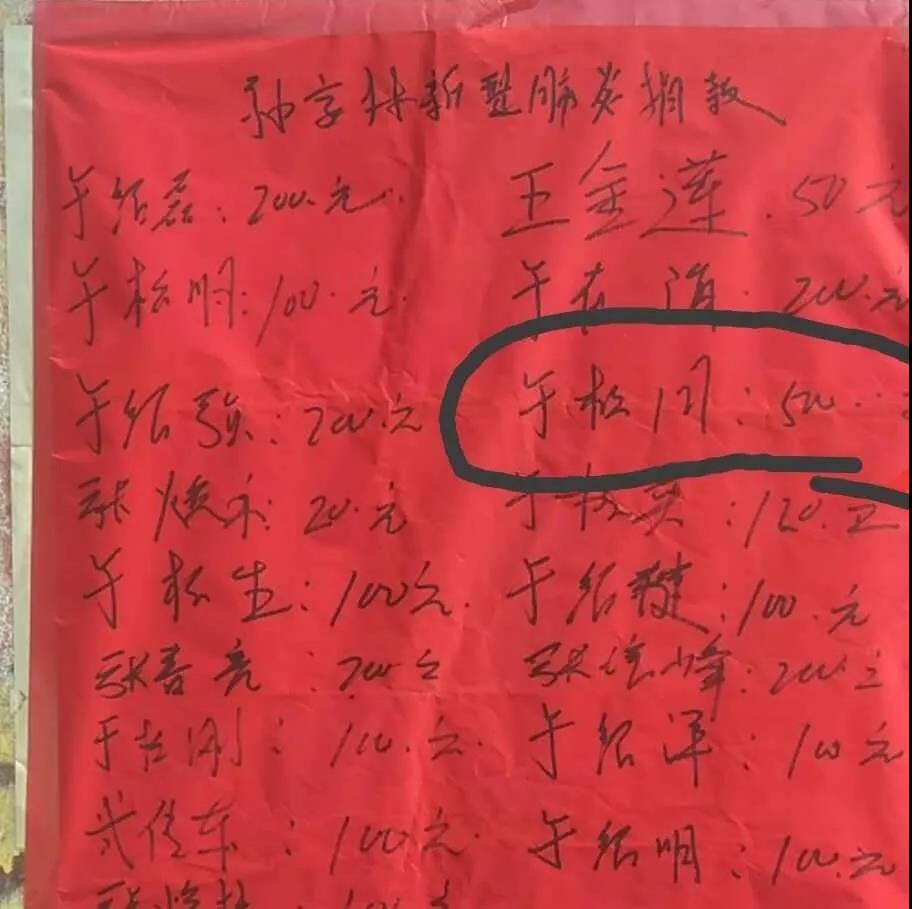 孙家林新型肺炎捐款
于绍磊：200.元. 王金莲.50元
于松明：100.元. 于在海.200.元
于绍强：200元 于松同：500.
张焕永：20.元 于松英：120.元
于松生：100元. 于绍建：100.元
张喜亮：200元 张传峰：200元
于在刚：100.元. 于绍泽：100元
武传东：100元. 于绍明：100.元